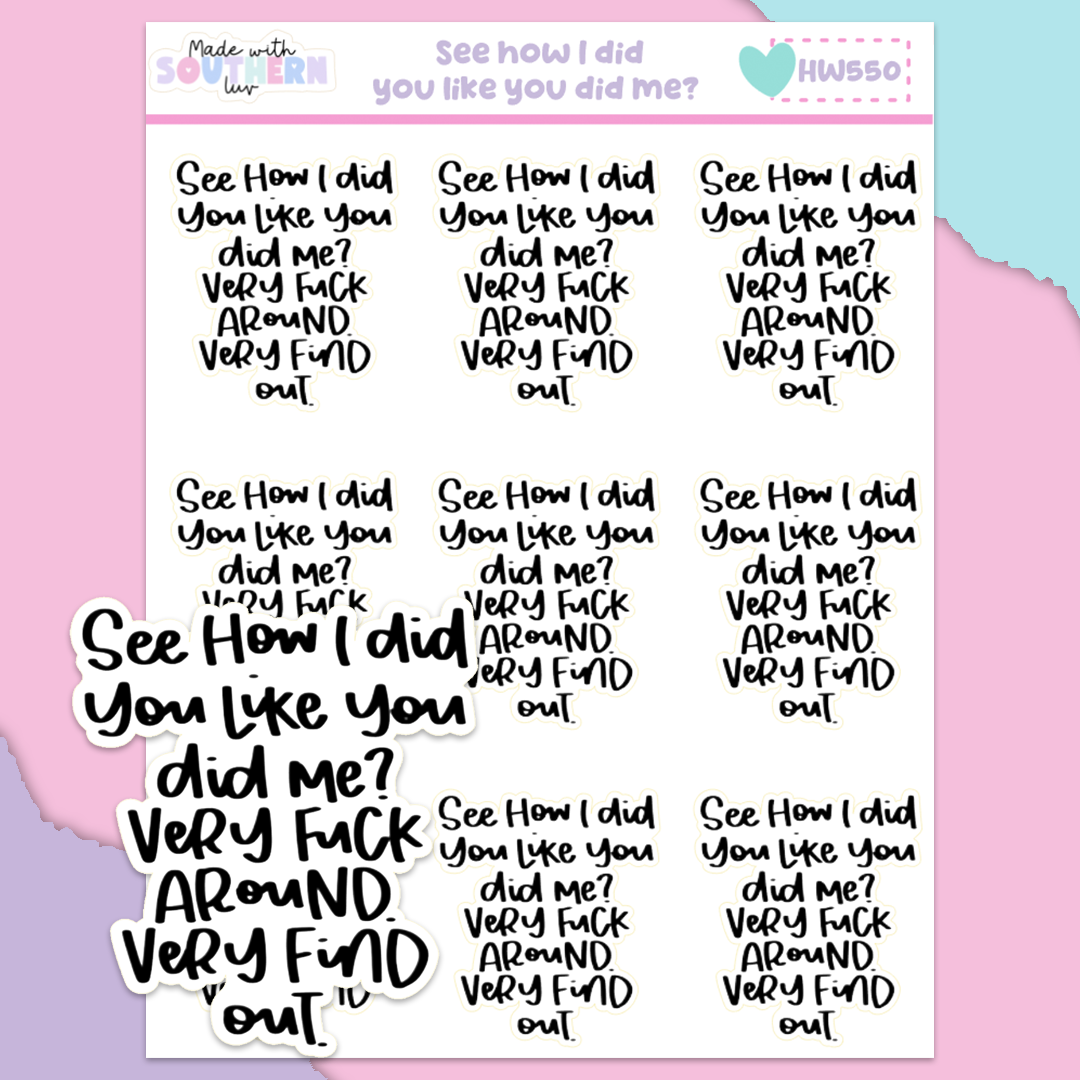 Made with
SOUTHERN
luv
See how I did
you like you did me?
HW550
See How I did
you like you
did me?
Very Fuck
Around.
Very Find
out.
See How I did
you like you
did me?
Very Fuck
Around.
Very Find
out.
See How I did
you like you
did me?
Very Fuck
Around.
Very Find
out.
See How I did
you like you
did me?
Very Fuck
See How I did
you like you
did me?
Very Fuck
Around.
Very Find
out.
See How I did
you like you
did me?
Very Fuck
Around.
Very Find
out.
See How I did
you like you
did me?
Very Fuck
Around.
Very Find
out.
See How I did
you like you
did me?
Very Fuck
Around.
Very Find
out.
See How I did
you like you
did me?
Very Fuck
Around.
Very Find
out.